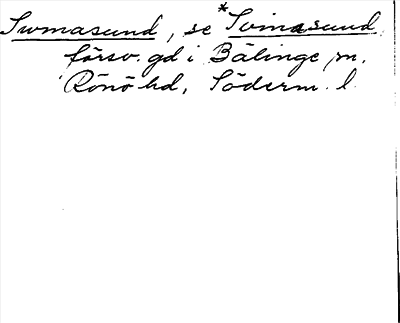 Swmasund, se *Svinasund,
försv. gd i Bälinge sn.
Rönö hd, Söderm. l.